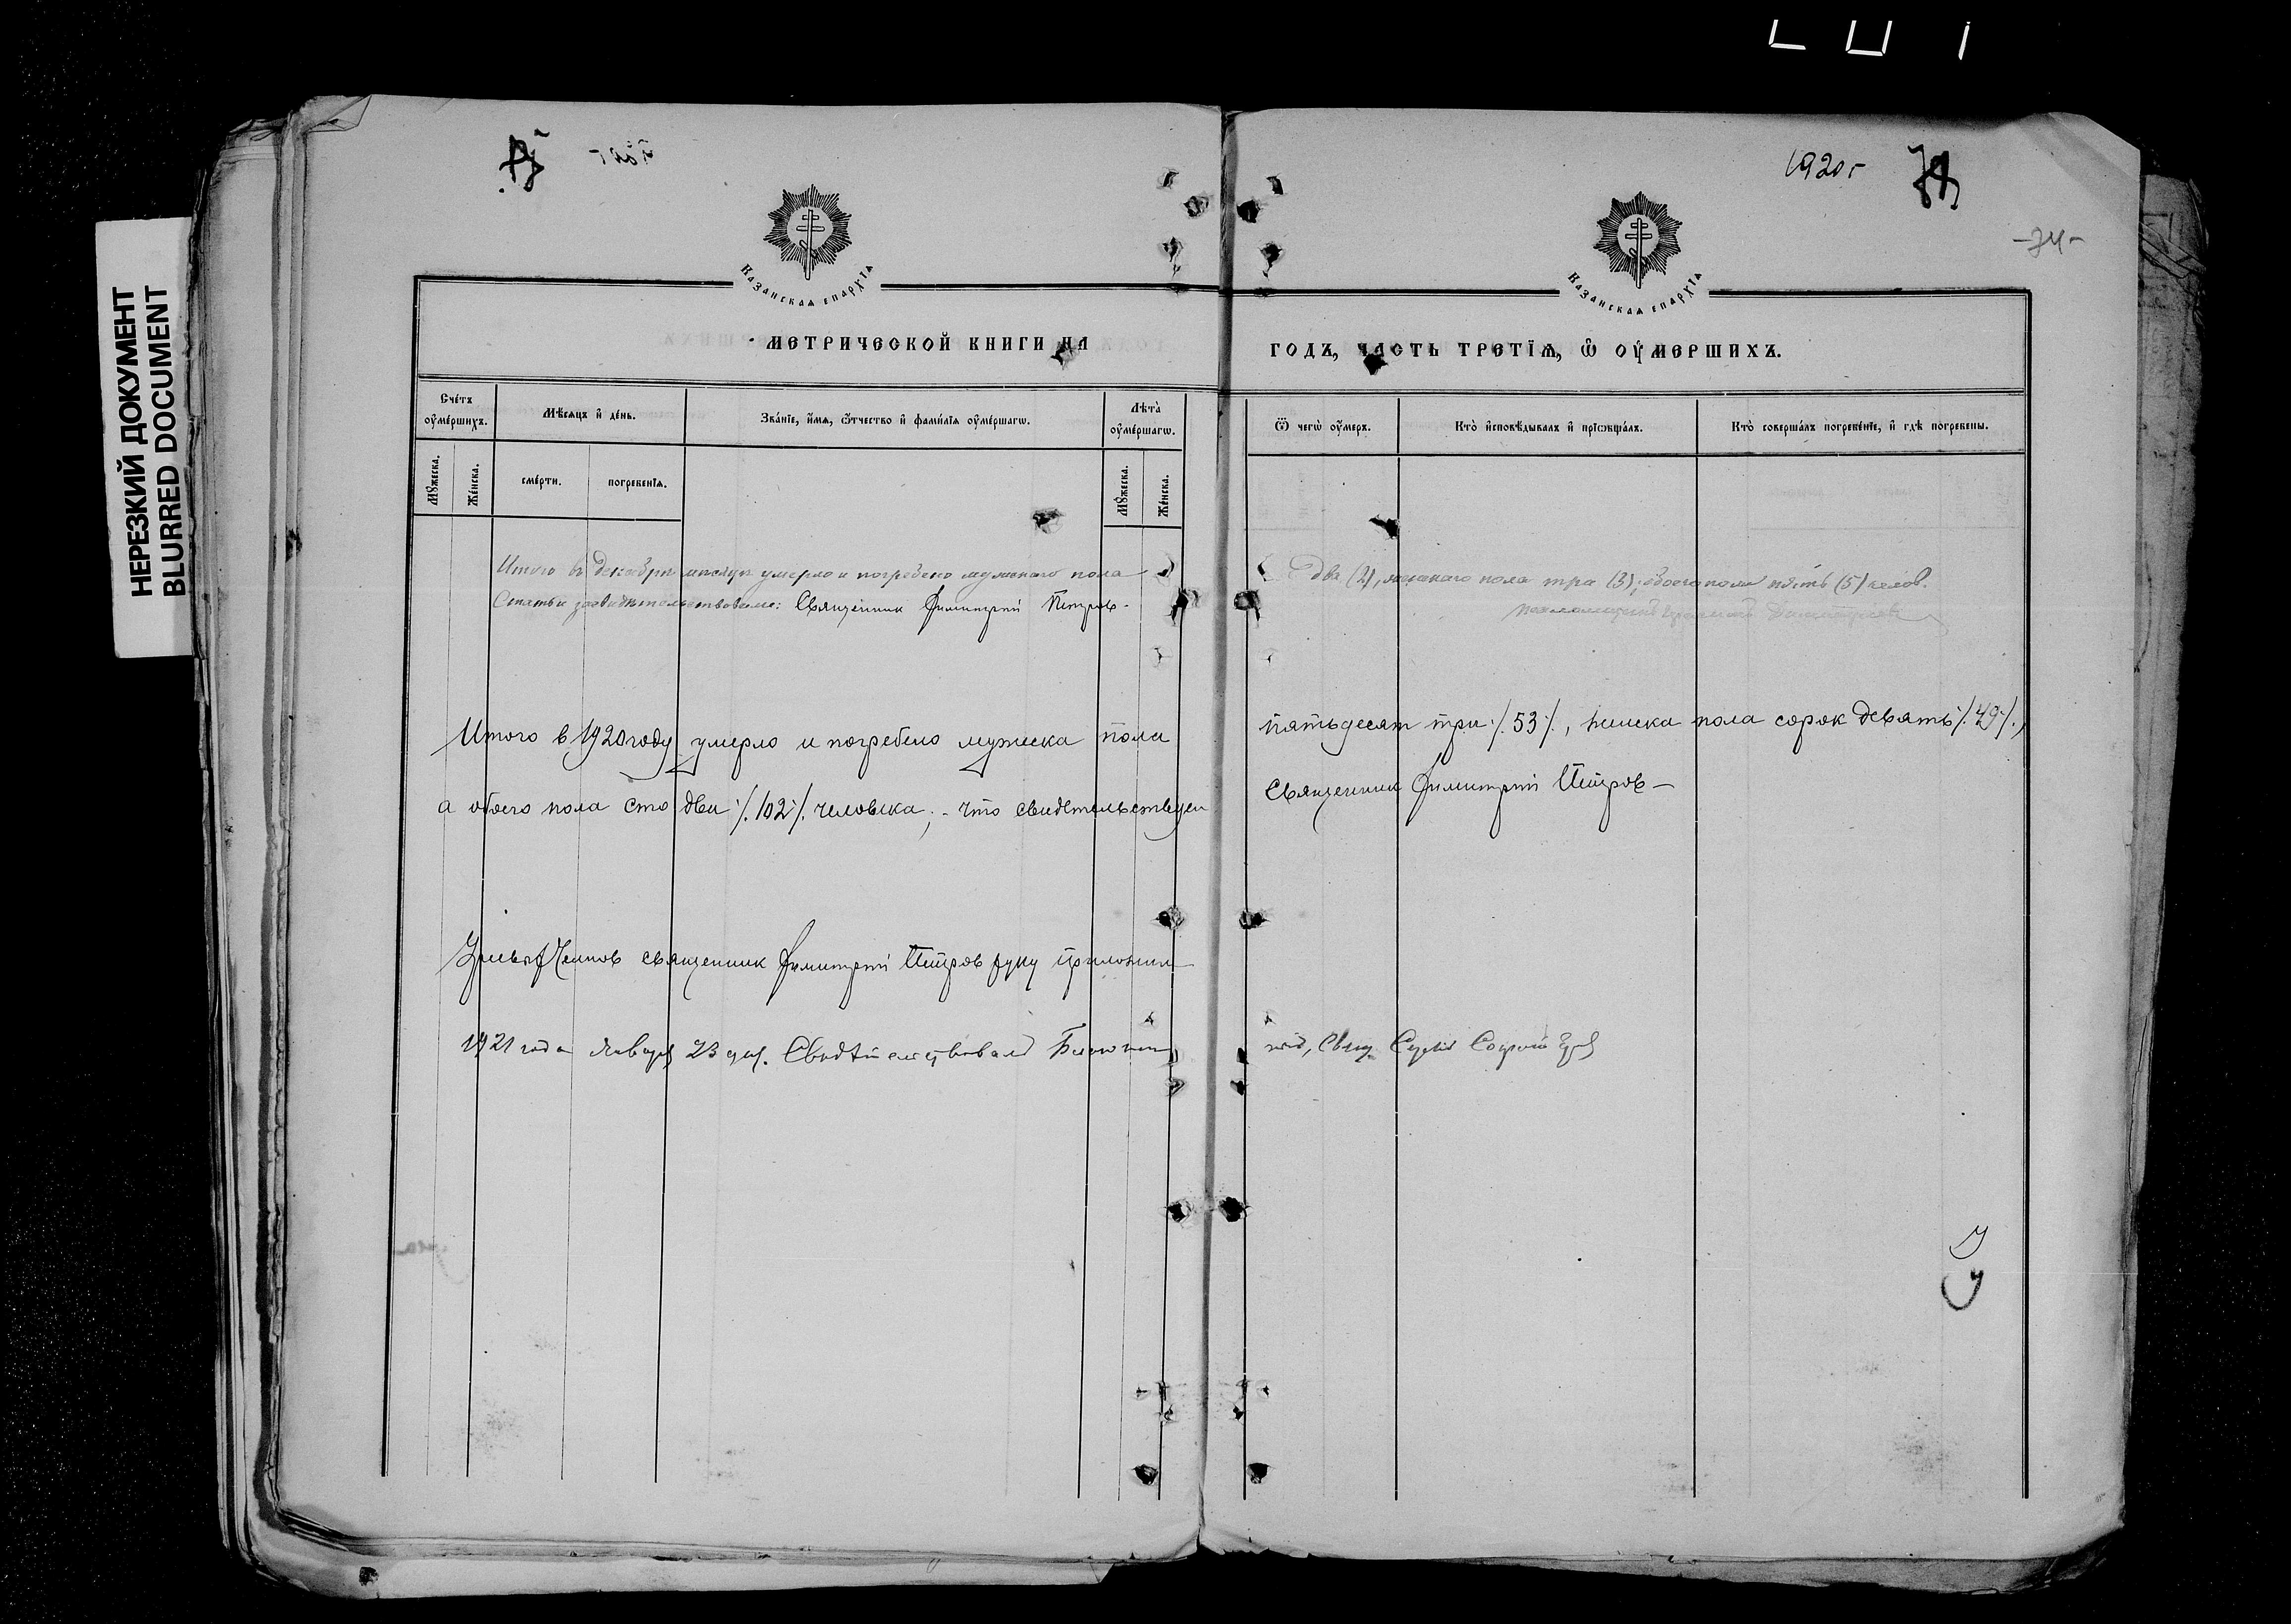 НЕРЕЗКИЙ ДОКУМЕНТ
BLURRED DOCUMENT
1920 г
-74-
КАЗАНСКАѦ ЕПАРХІѦ
КАЗАНСКАѦ ЕПАРХІѦ
МЕТРИЧЕСКОЙ КНИГИ НА ГОДЪ, ЧАСТЬ ТРЕТІѦ, Ѽ ОУМЕРШИХЪ.
Счетъ оумершихъ.
Мѣсѧцъ и день.
Званіе, имѧ, ѻтчество и фамиліѧ оумершагѡ.
Лѣта оумершагѡ.
Ѿ чегѡ оумеръ.
Кто исповѣдывалъ и пріѡбщалъ.
Кто совершалъ погребеніе, и гдѣ погребены.
Мꙋжеска.
Женска.
смерти.
погребеніѧ.
Мꙋжеска.
Женска.
Итого в декабри месяце умерло и погребено мужскаго пола два (2), женскаго пола три (3); обоего пола пять (5) челов.
Статьи засвидетельствовали: Священник Димитрий Петров.
Итого в 1920 году умерло и погребено мужеска пола пятьдесят три ./. 53 ./., женска пола сорок девять ./. 49 ./.,
а обоего пола сто два ./. 102 ./. человека; - что свидетельствует Священник Димитрий Петров —
священник Димитрий Петров руку приложил
1921 года Января 23 дня. Свидѣтельствовалъ Свящ.